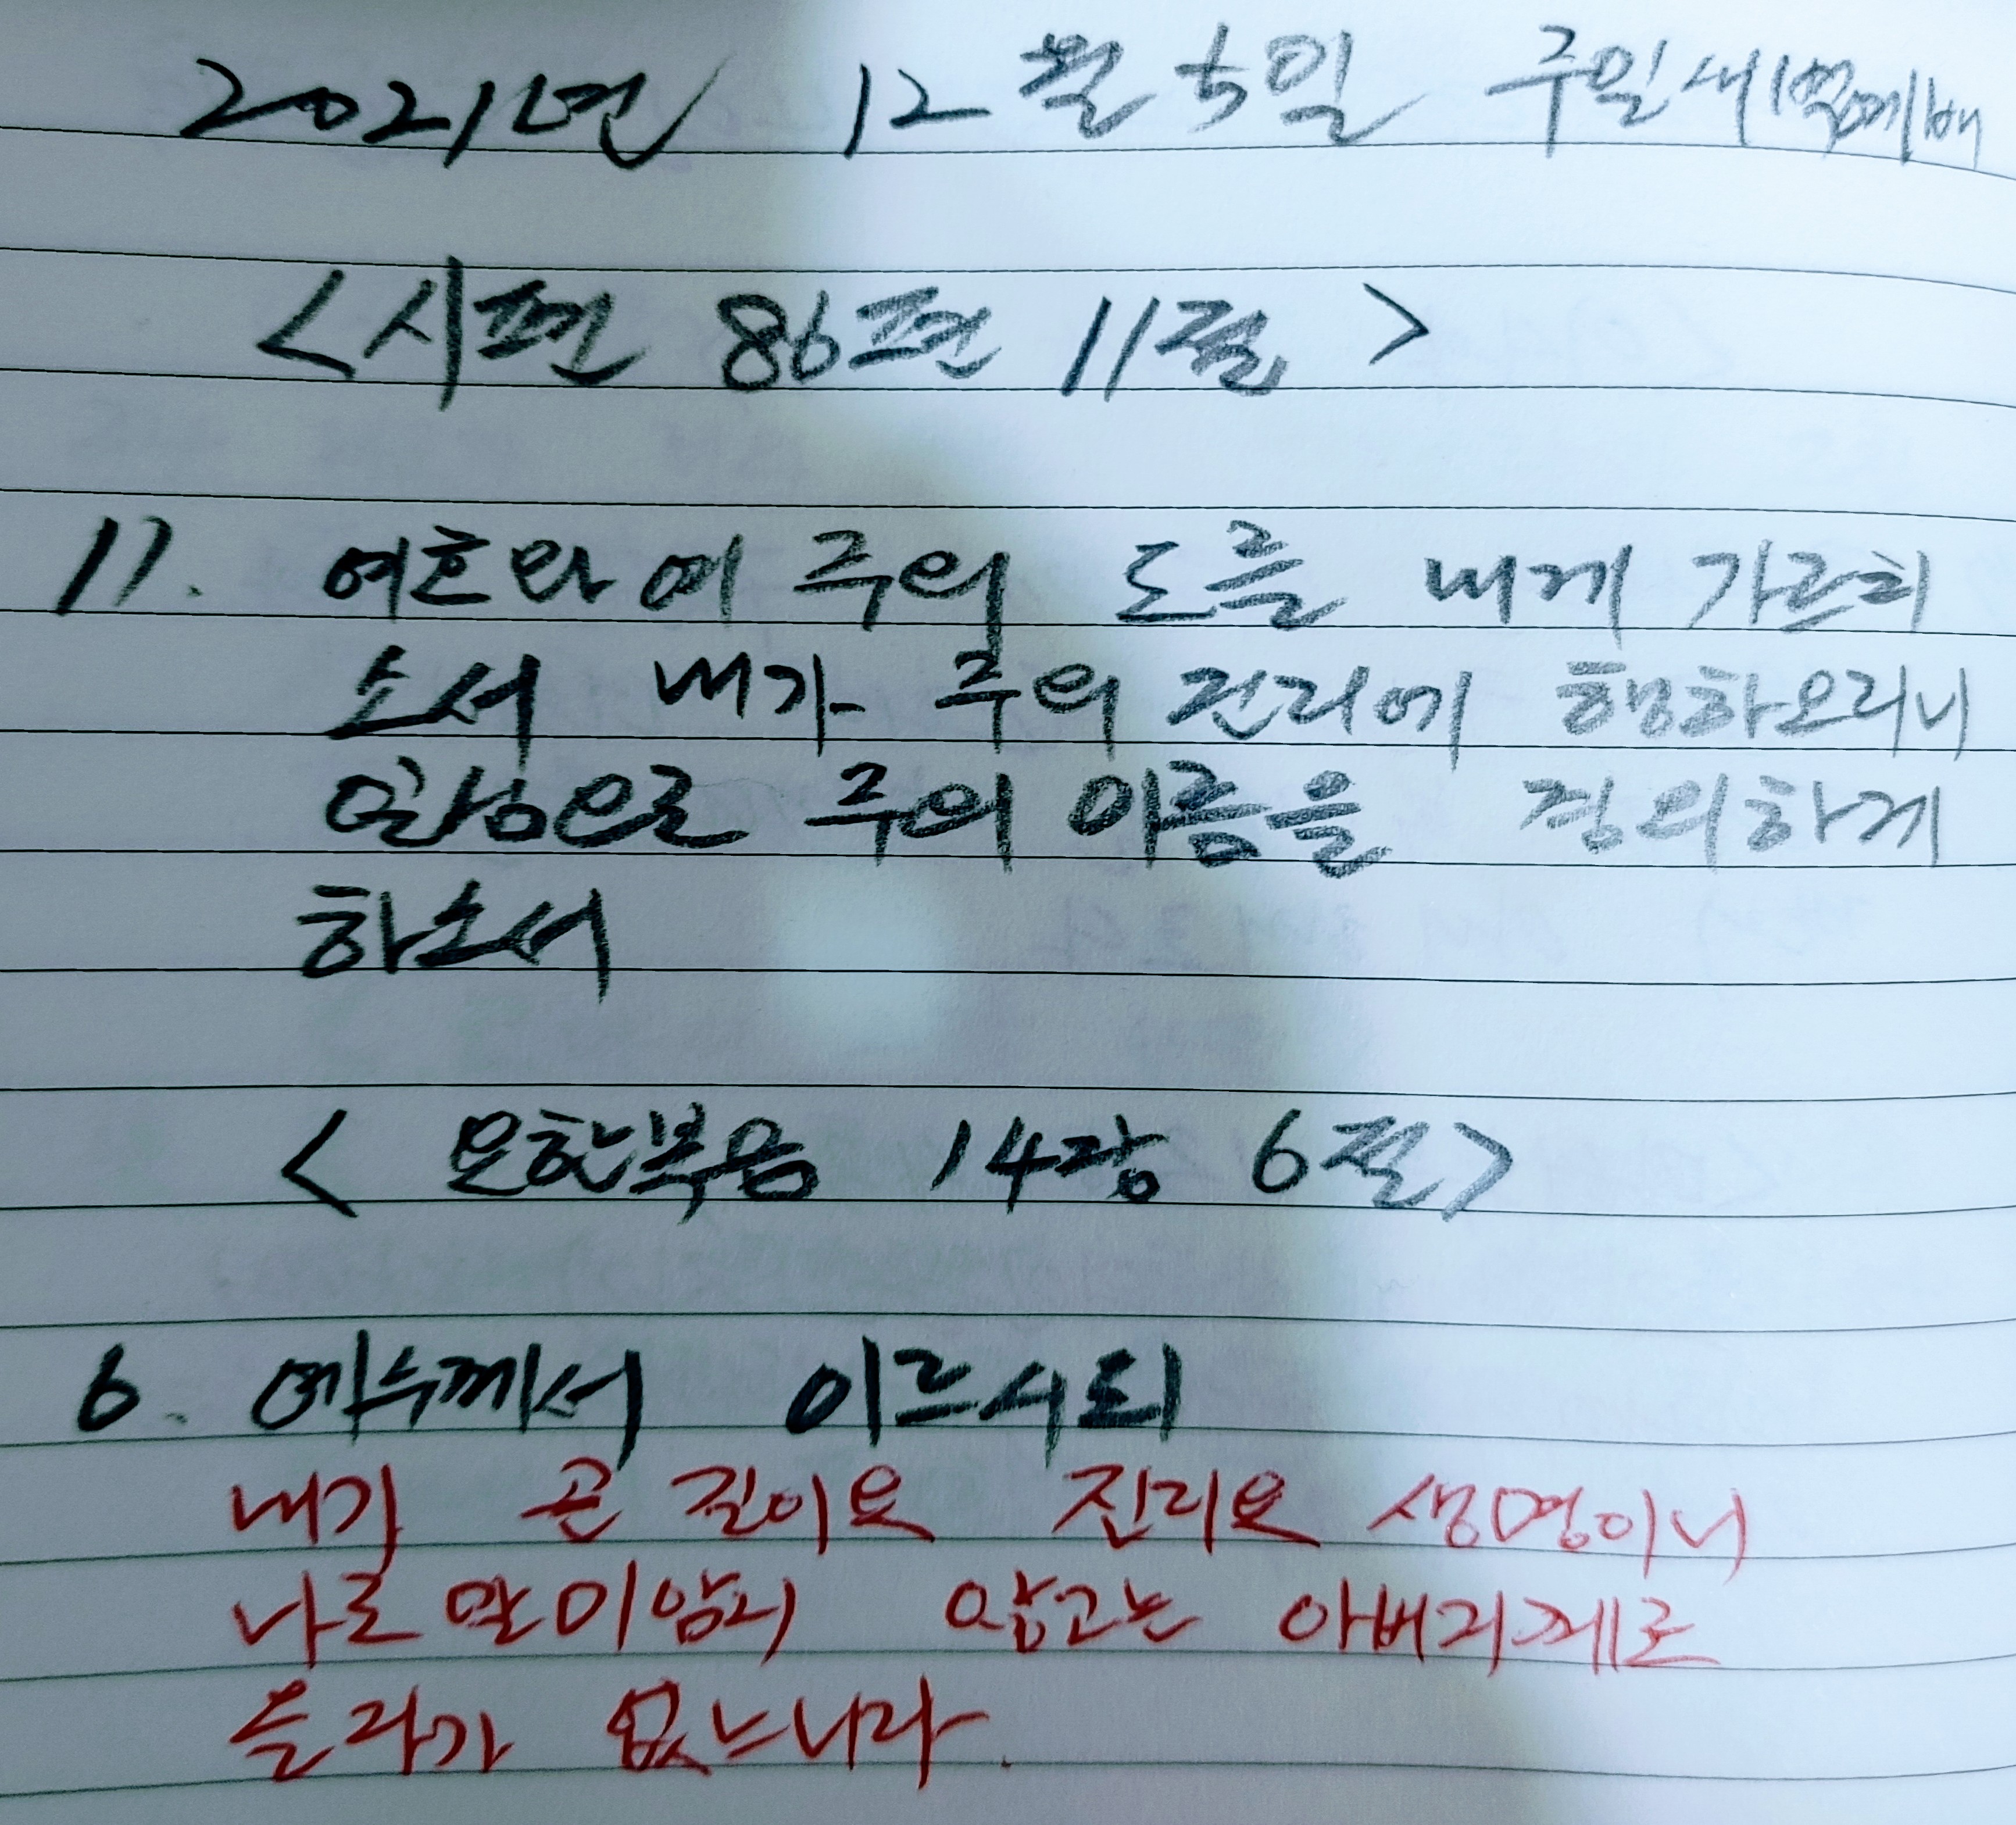 2021년 12월 5일 주일새벽예배
<시편 86편 11절>
11. 여호와여 주의 도를 내게 가르치
소서 내가 주의 진리에 행하오리니
일심으로 주의 이름을 경외하게
하소서
< 요한복음 14장 6절>
6. 예수께서 이르시되
내가 곧 길이요 진리요 생명이니
나로 말미암지 않고는 아버지께로
올 자가 없느니라.